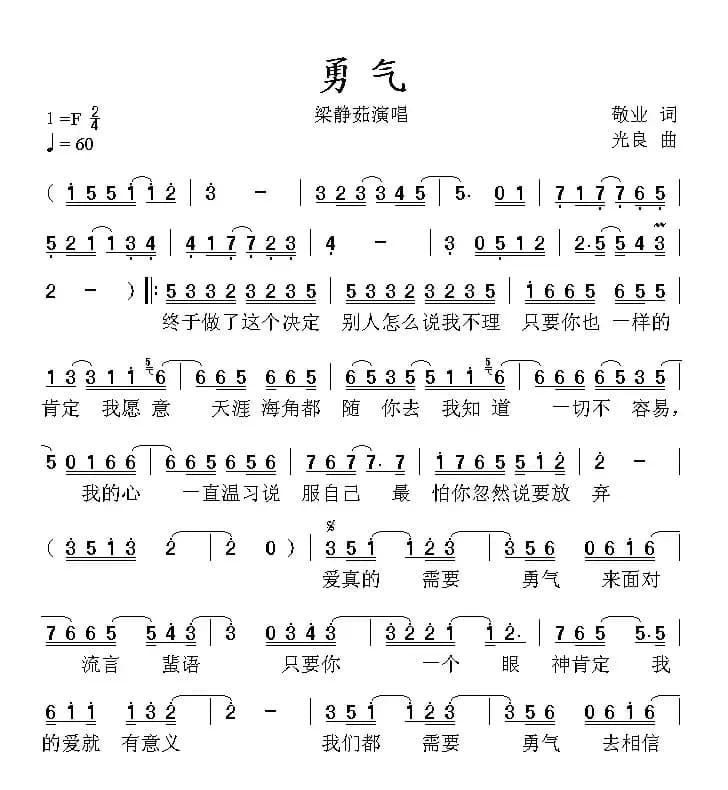 勇气
1=F 2/4 梁静茹演唱 敬业 词
♩=60 光良 曲
( 1 5 5 1 1 1 2 | 3 - | 3 2 3 3 4 5 | 5. 0 1 | 7 1 7 7 6 5 |
5 2 1 1 3 4 | 4 1 7 7 2 3 | 4 - | 3 0 5 1 2 | 2. 5 5 4 3 |
2 - ) ‖: 5 3 3 2 3 2 3 5 | 5 3 3 2 3 2 3 5 | 1 6 6 5 6 5 5 |
终于做了这个决定 别人怎么说我不理 只要你也 一样的
1 3 3 1 1 5 6 | 6 6 5 6 6 5 | 6 5 3 5 5 1 1 5 6 | 6 6 6 5 3 5 |
肯定 我愿 意 天涯 海角都 随 你去 我知 道 一切不 容易，
5 0 1 6 6 | 6 6 5 6 5 6 | 7 6 7 7. 7 | 1 7 6 5 5 1 2 | 2 - |
我的心 一直温习说 服自己 最 怕你忽然说要放 弃
( 3 5 1 3 2 | 2 0 ) | 3 5 1 1 2 3 | 3 5 6 0 6 1 6 |
爱真的 需要 勇气 来面对
7 6 6 5 5 4 3 | 3 0 3 4 3 | 3 2 2 1 1 2. | 7 6 5 5. 5 |
流言 蜚语 只要你 一个 眼 神肯定 我
6 1 1 1 3 2 | 2 - | 3 5 1 1 2 3 | 3 5 6 0 6 1 6 |
的爱就 有意义 我们都 需要 勇气 去相信